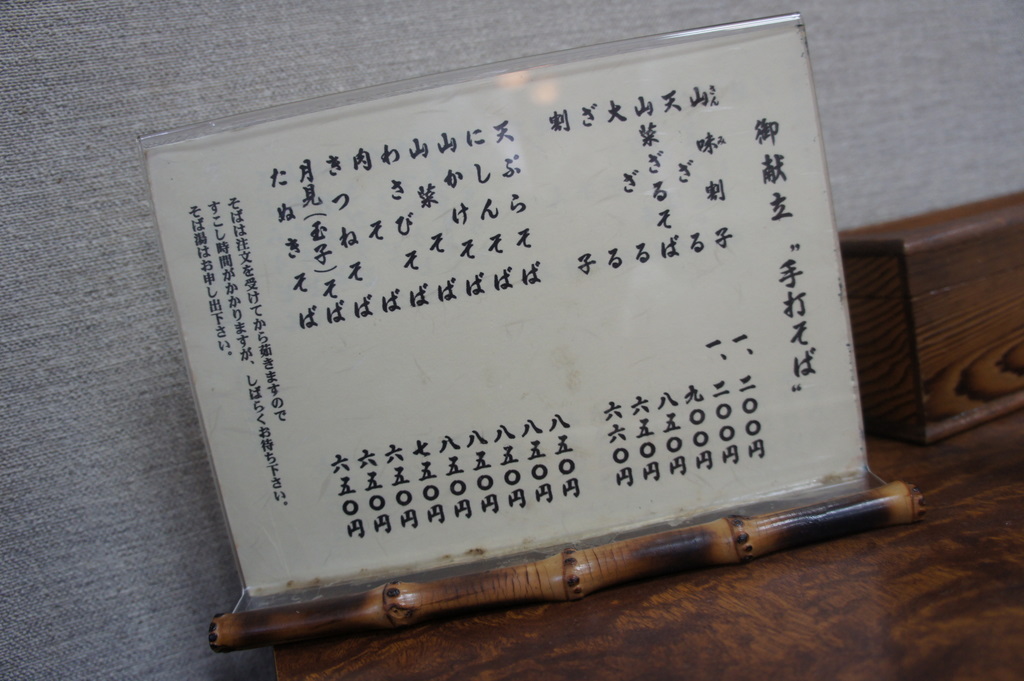 御献立 〝手打そば〟
山味割子 一、二〇〇円
さん み
天ざる 一、二〇〇円
山菜ざるそば 九〇〇円
大ざる 八五〇円
ざる 六五〇円
割子 六六〇円
天ぷらそば 八五〇円
にしんそば 八五〇円
山かけそば 八五〇円
山菜そば 八五〇円
わさびそば 八五〇円
肉そば 七五〇円
きつねそば 六五〇円
月見(玉子)そば 六五〇円
たぬきそば 六五〇円
そばは注文を受けてから茹きますので
すこし時間がかかりますが、しばらくお待ち下さい。
そば湯はお申し出下さい。